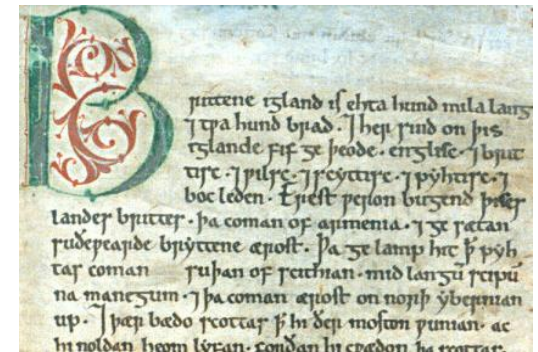 Brittene igland is ehta hund mila lang
⁊ tƿa hund brad. ⁊ her sind on þis
iglande fif ge þeode. englisc. ⁊ brit
tisc. ⁊ ƿilsc. ⁊ scyttisc. ⁊ pyhtisc. ⁊
boc leden. Erest ƿeron bugend þises
landes brittes. þa coman of armenia. ⁊ ge sætan
suðeƿearde bryttene ærost. Þa ge lamp hit ꝥ pyh
tas coman suþan of scithian. mid langū scipū
na manegum. ⁊ þa coman ærost on norþ ybernian
up. ⁊ þær bædo scottas ꝥ hi ðer moston ƿunian. ac
hi noldan heom lyfan. forðan hi cƿædon þa scottas